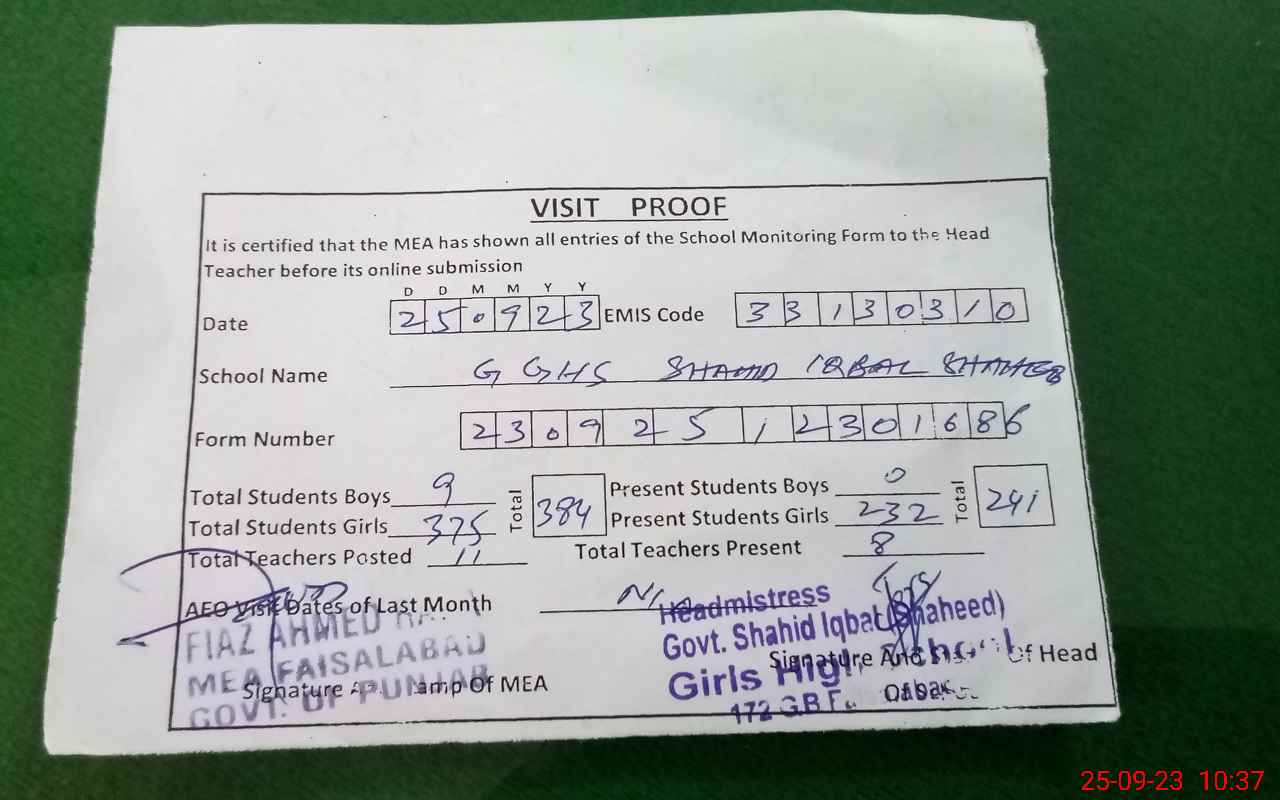 VISIT PROOF
It is certified that the MEA has shown all entries of the School Monitoring Form to the Head
Teacher before its online submission
D D M M Y Y
Date 2 5 0 9 2 3 EMIS Code 3 3 1 3 0 3 1 0
School Name G GHS SHAHID IQBAL SHAHEED
Form Number 2 3 0 9 2 5 1 2 3 0 1 6 8 6
Total Students Boys 9 Total 384 Present Students Boys 0 Total 241
Total Students Girls 375 Present Students Girls 232
Total Teachers Posted 11 Total Teachers Present 8
AEO Visit Dates of Last Month
Headmistress
Govt. Shahid Iqbal (Shaheed)
Girls High School
172 G.B
FIAZ AHMED
MEA FAISALABAD
GOVT. OF PUNJAB
Signature Stamp Of MEA
Signature And Of Head
25-09-23 10:37